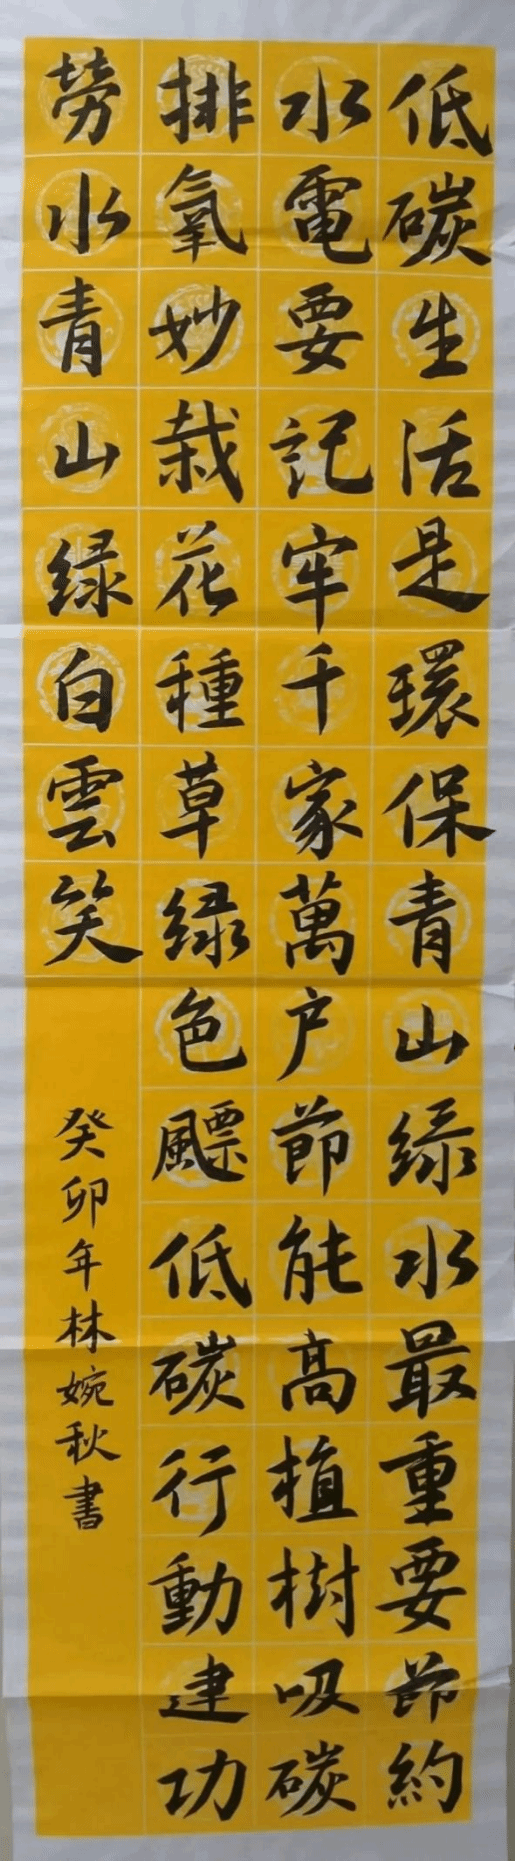 低碳生活是環保青山緑水最重要節約
水電要記牢千家萬户節能高植樹吸碳
排氧妙栽花種草緑色飃低碳行動建功
勞水青山緑白雲笑
癸卯年林婉秋書